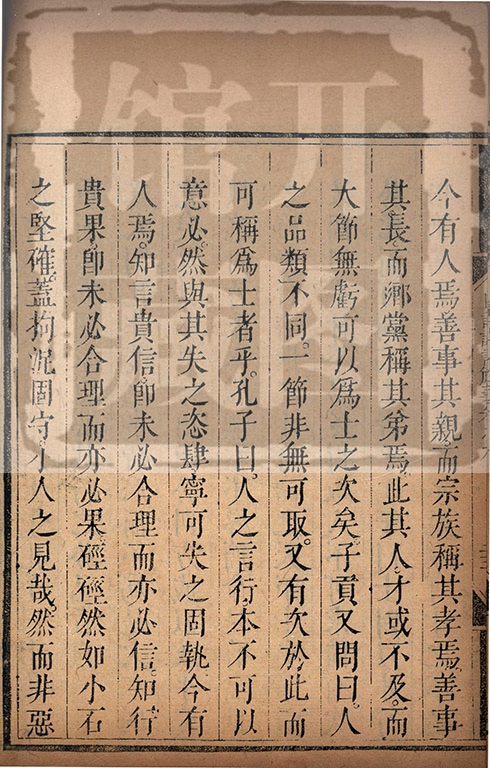 今有人焉善事其親而宗族稱其孝焉善事
其長而鄉黨稱其弟焉此其人才或不及而
大節無虧可以爲士之次矣子貢又問曰人
之品類不同一節非無可取又有次於此而
可稱爲士者乎孔子曰人之言行本不可以
意必然與其失之恣肆寧可失之固執今有
人焉知言貴信卽未必合理而亦必信知行
貴果卽未必合理而亦必果硜硜然如小石
之堅確蓋拘泥固守小人之見哉然而非惡